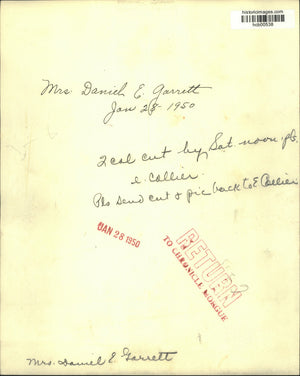 historicimages.com
hcb00538
Mrs. Daniel E. Garrett
Jan 28 - 1950
2 col cut by Sat noon pls
E. Collier
Pls send cut & pic back to E Collier
JAN 28 1950
RETURN
TO CHRONICLE MORGUE
Mrs. Daniel E. Garrett